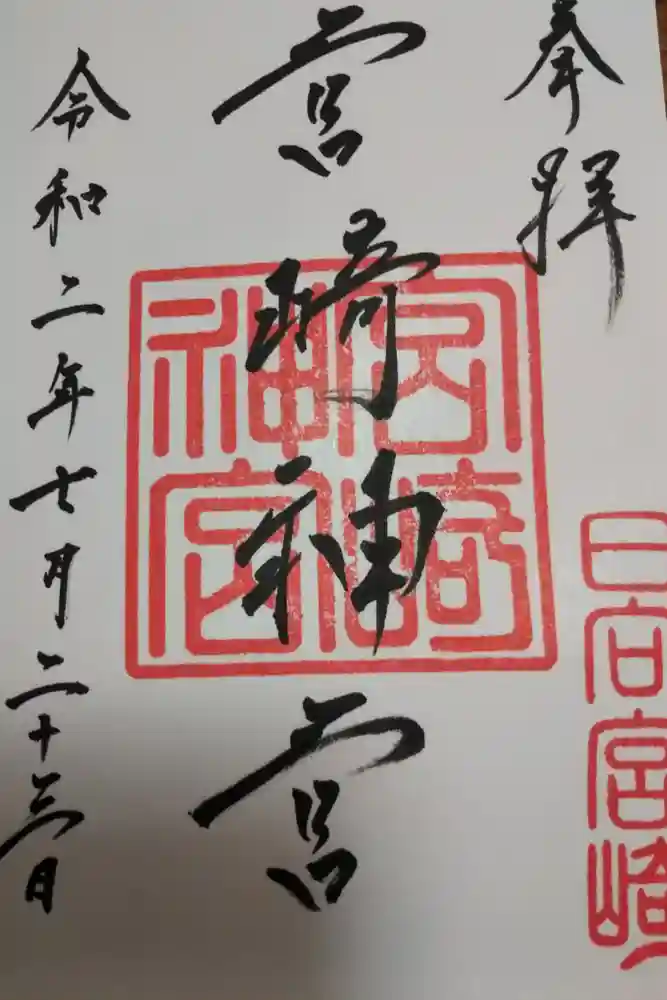 奉拝
日向宮崎
宮崎神宮
宮崎
神宮
令和二年七月二十三日